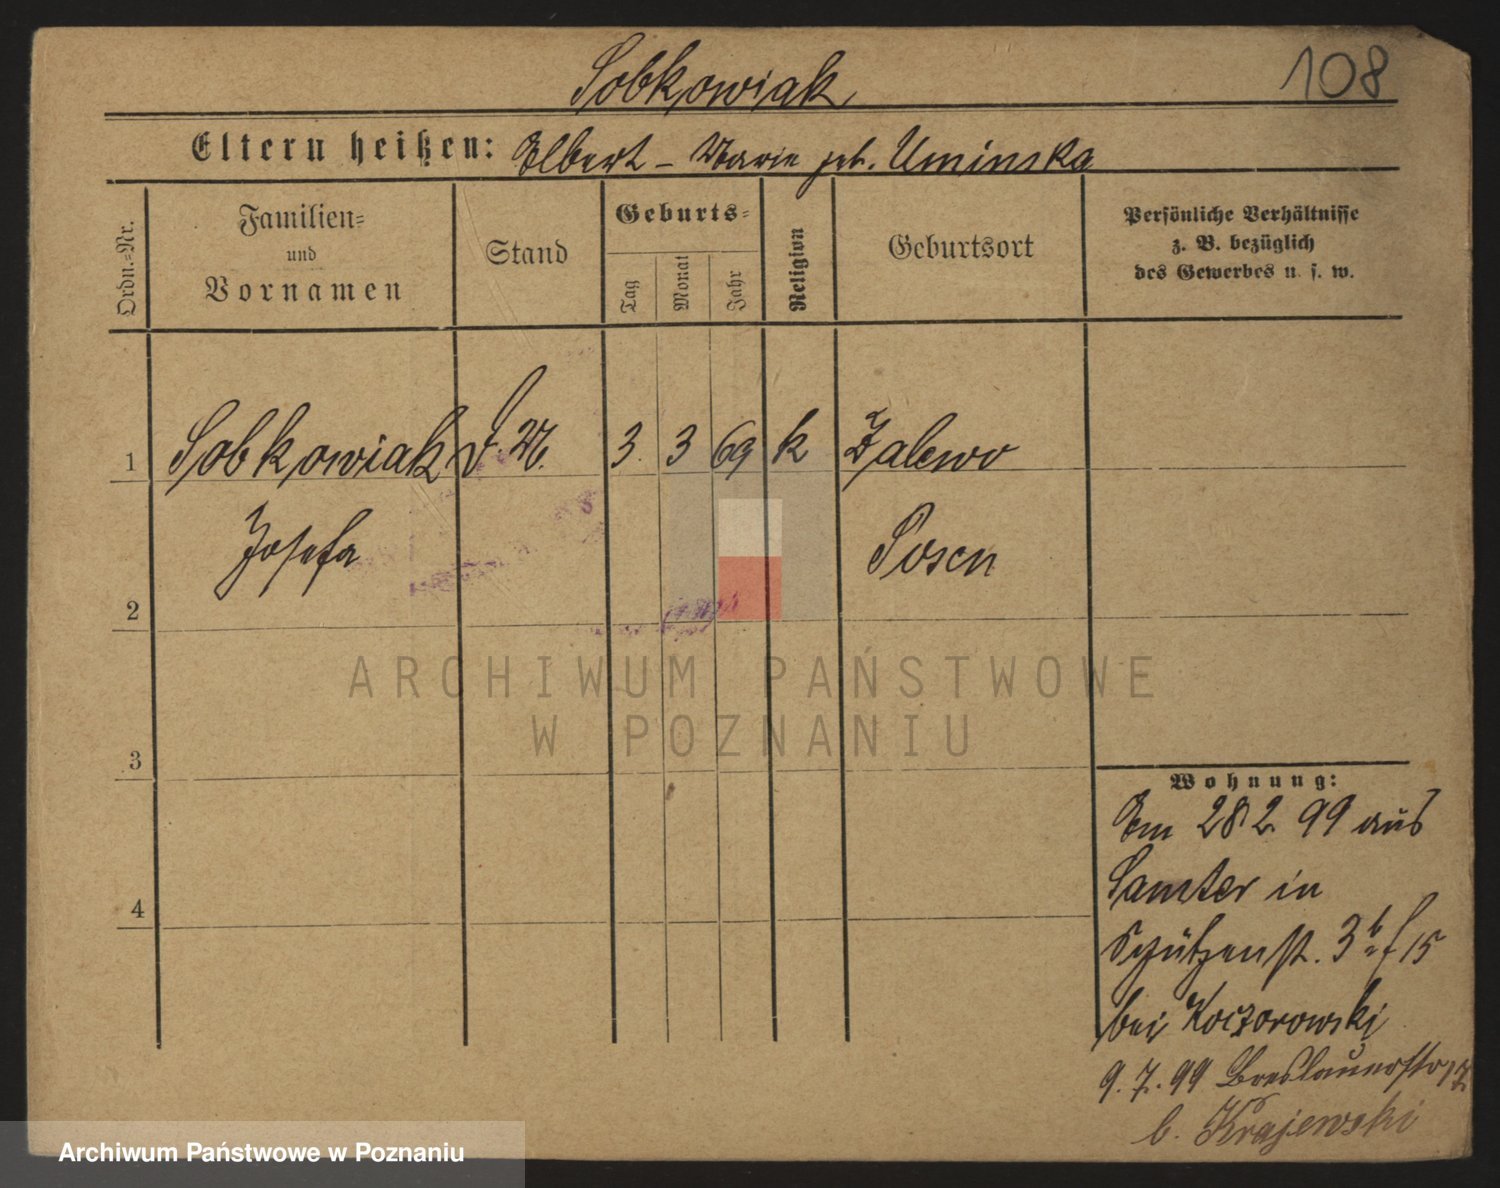 Sobkowiak
108
Eltern heißen: Elbert - Marie geb. Uminska
Ordn.-Nr.
Familien-
und
Vornamen
Stand
Geburts-
Tag
Monat
Jahr
Religion
Geburtsort
Persönliche Verhältnisse
z. B. bezüglich
des Gewerbes u. s. w.
1 Sobkowiak D. M. 3. 3 69 k Zalewo
Josefa Posen
2
3
4
Wohnung:
Am 28 2 99 aus
Samter in
Schützenst. 3 b 15
bei Koczorowski
9. 7. 99 Breslauerstr 17
b. Krajewski
ARCHIWUM PAŃSTWOWE
W POZNANIU
Archiwum Państwowe w Poznaniu